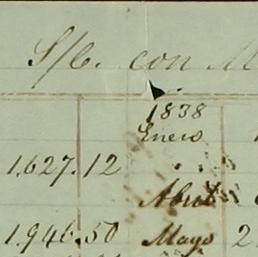 S/C. con M
1838
Enero
1,627.12
Abril
1.946.50 Mayo 2